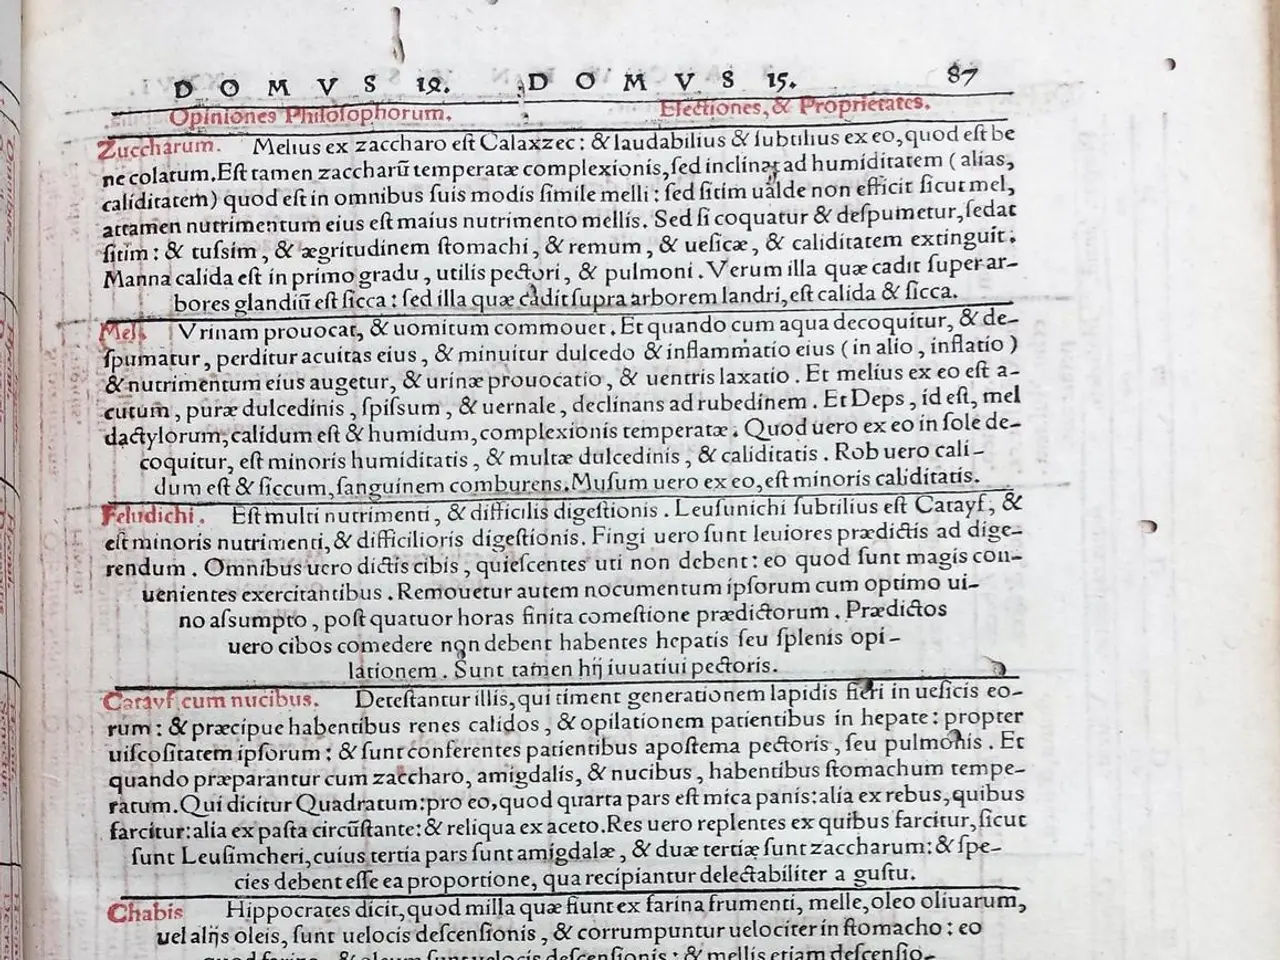 DOMVS 12. DOMVS 15. 87
Opiniones Philoſophorum. Electiones, & Proprietates.
Zuccharum. Melius ex zaccharo eſt Calaxzec: & laudabilius & ſubtilius ex eo, quod eſt be
ne colatum. Eſt tamen zaccharū temperatæ complexionis, ſed inclinat ad humiditatem (alias,
caliditatem) quod eſt in omnibus ſuis modis ſimile melli: ſed ſitim ualde non efficit ſicut mel,
attamen nutrimentum eius eſt maius nutrimento mellis. Sed ſi coquatur & deſpumetur, ſedat
ſitim: & tuſsim, & ægritudinem ſtomachi, & remum, & ueſicæ, & caliditatem extinguit.
Manna calida eſt in primo gradu, utilis pectori, & pulmoni. Verum illa quæ cadit ſuper ar-
bores glandiū eſt ſicca: ſed illa quæ cadit ſupra arborem landri, eſt calida & ſicca.
Mel. Vrinam prouocat, & uomitum commouet. Et quando cum aqua decoquitur, & de-
ſpumatur, perditur acuitas eius, & minuitur dulcedo & inflammatio eius (in alio, inflatio)
& nutrimentum eius augetur, & urinæ prouocatio, & uentris laxatio. Et melius ex eo eſt a-
cutum, puræ dulcedinis, ſpiſsum, & uernale, declinans ad rubedinem. Et Deps, id eſt, mel
dactylorum, calidum eſt & humidum, complexionis temperatæ. Quod uero ex eo in ſole de-
coquitur, eſt minoris humiditatis, & multæ dulcedinis, & caliditatis. Rob uero cali-
dum eſt & ſiccum, ſanguinem comburens. Muſum uero ex eo, eſt minoris caliditatis.
Feludichi. Eſt multi nutrimenti, & difficilis digeſtionis. Leuſunichi ſubtilius eſt Catayf, &
eſt minoris nutrimenti, & difficilioris digeſtionis. Fingi uero ſunt leuiores prædictis ad dige-
rendum. Omnibus uero dictis cibis, quieſcentes uti non debent: eo quod ſunt magis con-
uenientes exercitantibus. Remouetur autem nocumentum ipſorum cum optimo ui-
no aſsumpto, poſt quatuor horas finita comeſtione prædictorum. Prædictos
uero cibos comedere non debent habentes hepatis ſeu ſplenis opi-
lationem. Sunt tamen hĳ iuuatiui pectoris.
Catayf cum nucibus. Deteſtantur illis, qui timent generationem lapidis fieri in ueſicis eo-
rum: & præcipue habentibus renes calidos, & opilationem patientibus in hepate: propter
uiſcoſitatem ipſorum: & ſunt conferentes patientibus apoſtema pectoris, ſeu pulmonis. Et
quando præparantur cum zaccharo, amigdalis, & nucibus, habentibus ſtomachum tempe-
ratum. Qui dicitur Quadratum: pro eo, quod quarta pars eſt mica panis: alia ex rebus, quibus
farcitur: alia ex paſta circūſtante: & reliqua ex aceto. Res uero replentes ex quibus farcitur, ſicut
ſunt Leuſimcheri, cuius tertia pars ſunt amigdalæ, & duæ tertiæ ſunt zaccharum: & ſpe-
cies debent eſſe ea proportione, qua recipiantur delectabiliter a guſtu.
Chabis Hippocrates dicit, quod milla quæ fiunt ex farina frumenti, melle, oleo oliuarum,
uel alĳs oleis, ſunt uelocis deſcenſionis, & corrumpuntur uelociter in ſtomacho: eo
quod farina, & oleum ſunt uelocis deſcenſionis: & mellis etiam deſcenſio-